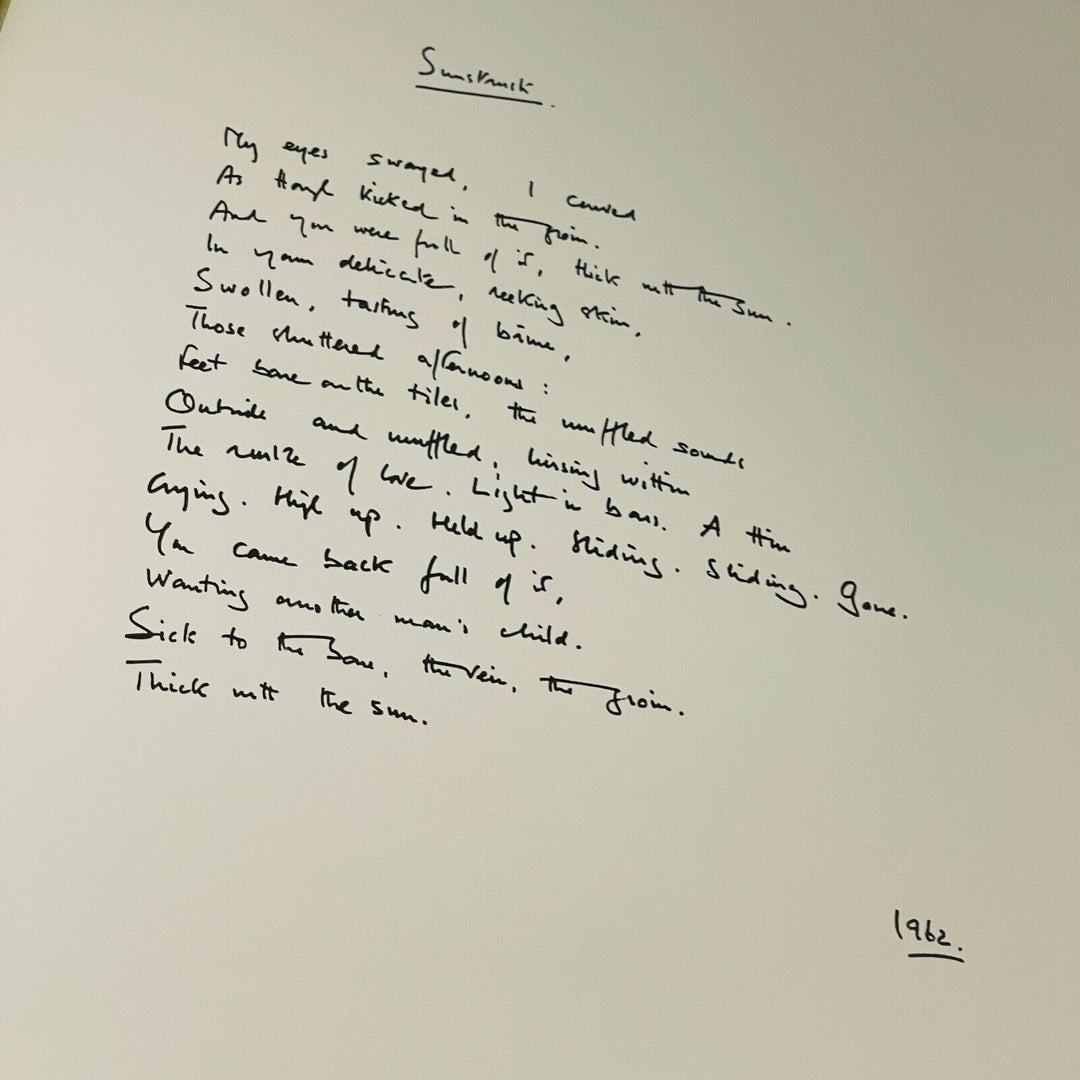 Sunstruck.
My eyes swayed, I curved
As though kicked in the groin.
And you were full of it, thick with the sun.
In your delicate, reeking skin,
Swollen, tasting of brine,
Those shuttered afternoons:
Feet bare on the tiles, the muffled sounds
Outside and muffled, hissing within
The of love. Light in bars. A thin
Crying. High up. Held up. Sliding. Sliding. Gone.
You came back full of it,
Wanting another man's child.
Sick to the bone, the vein, the groin.
Thick with the sun.
1962.